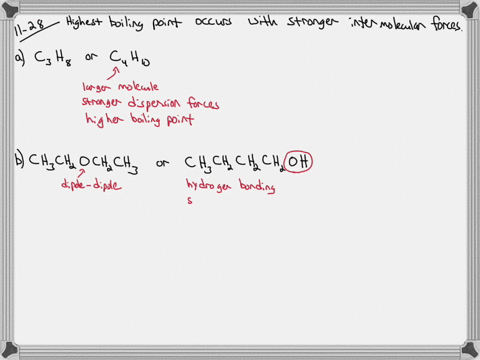 11-28 Highest boiling point occurs with stronger intermolecular forces.
a) C3H8 or C4H10
larger molecule
stronger dispersion forces
higher boiling point
b) CH3CH2OCH2CH3 or CH3CH2CH2CH2OH
dipole-dipole hydrogen bonding
s